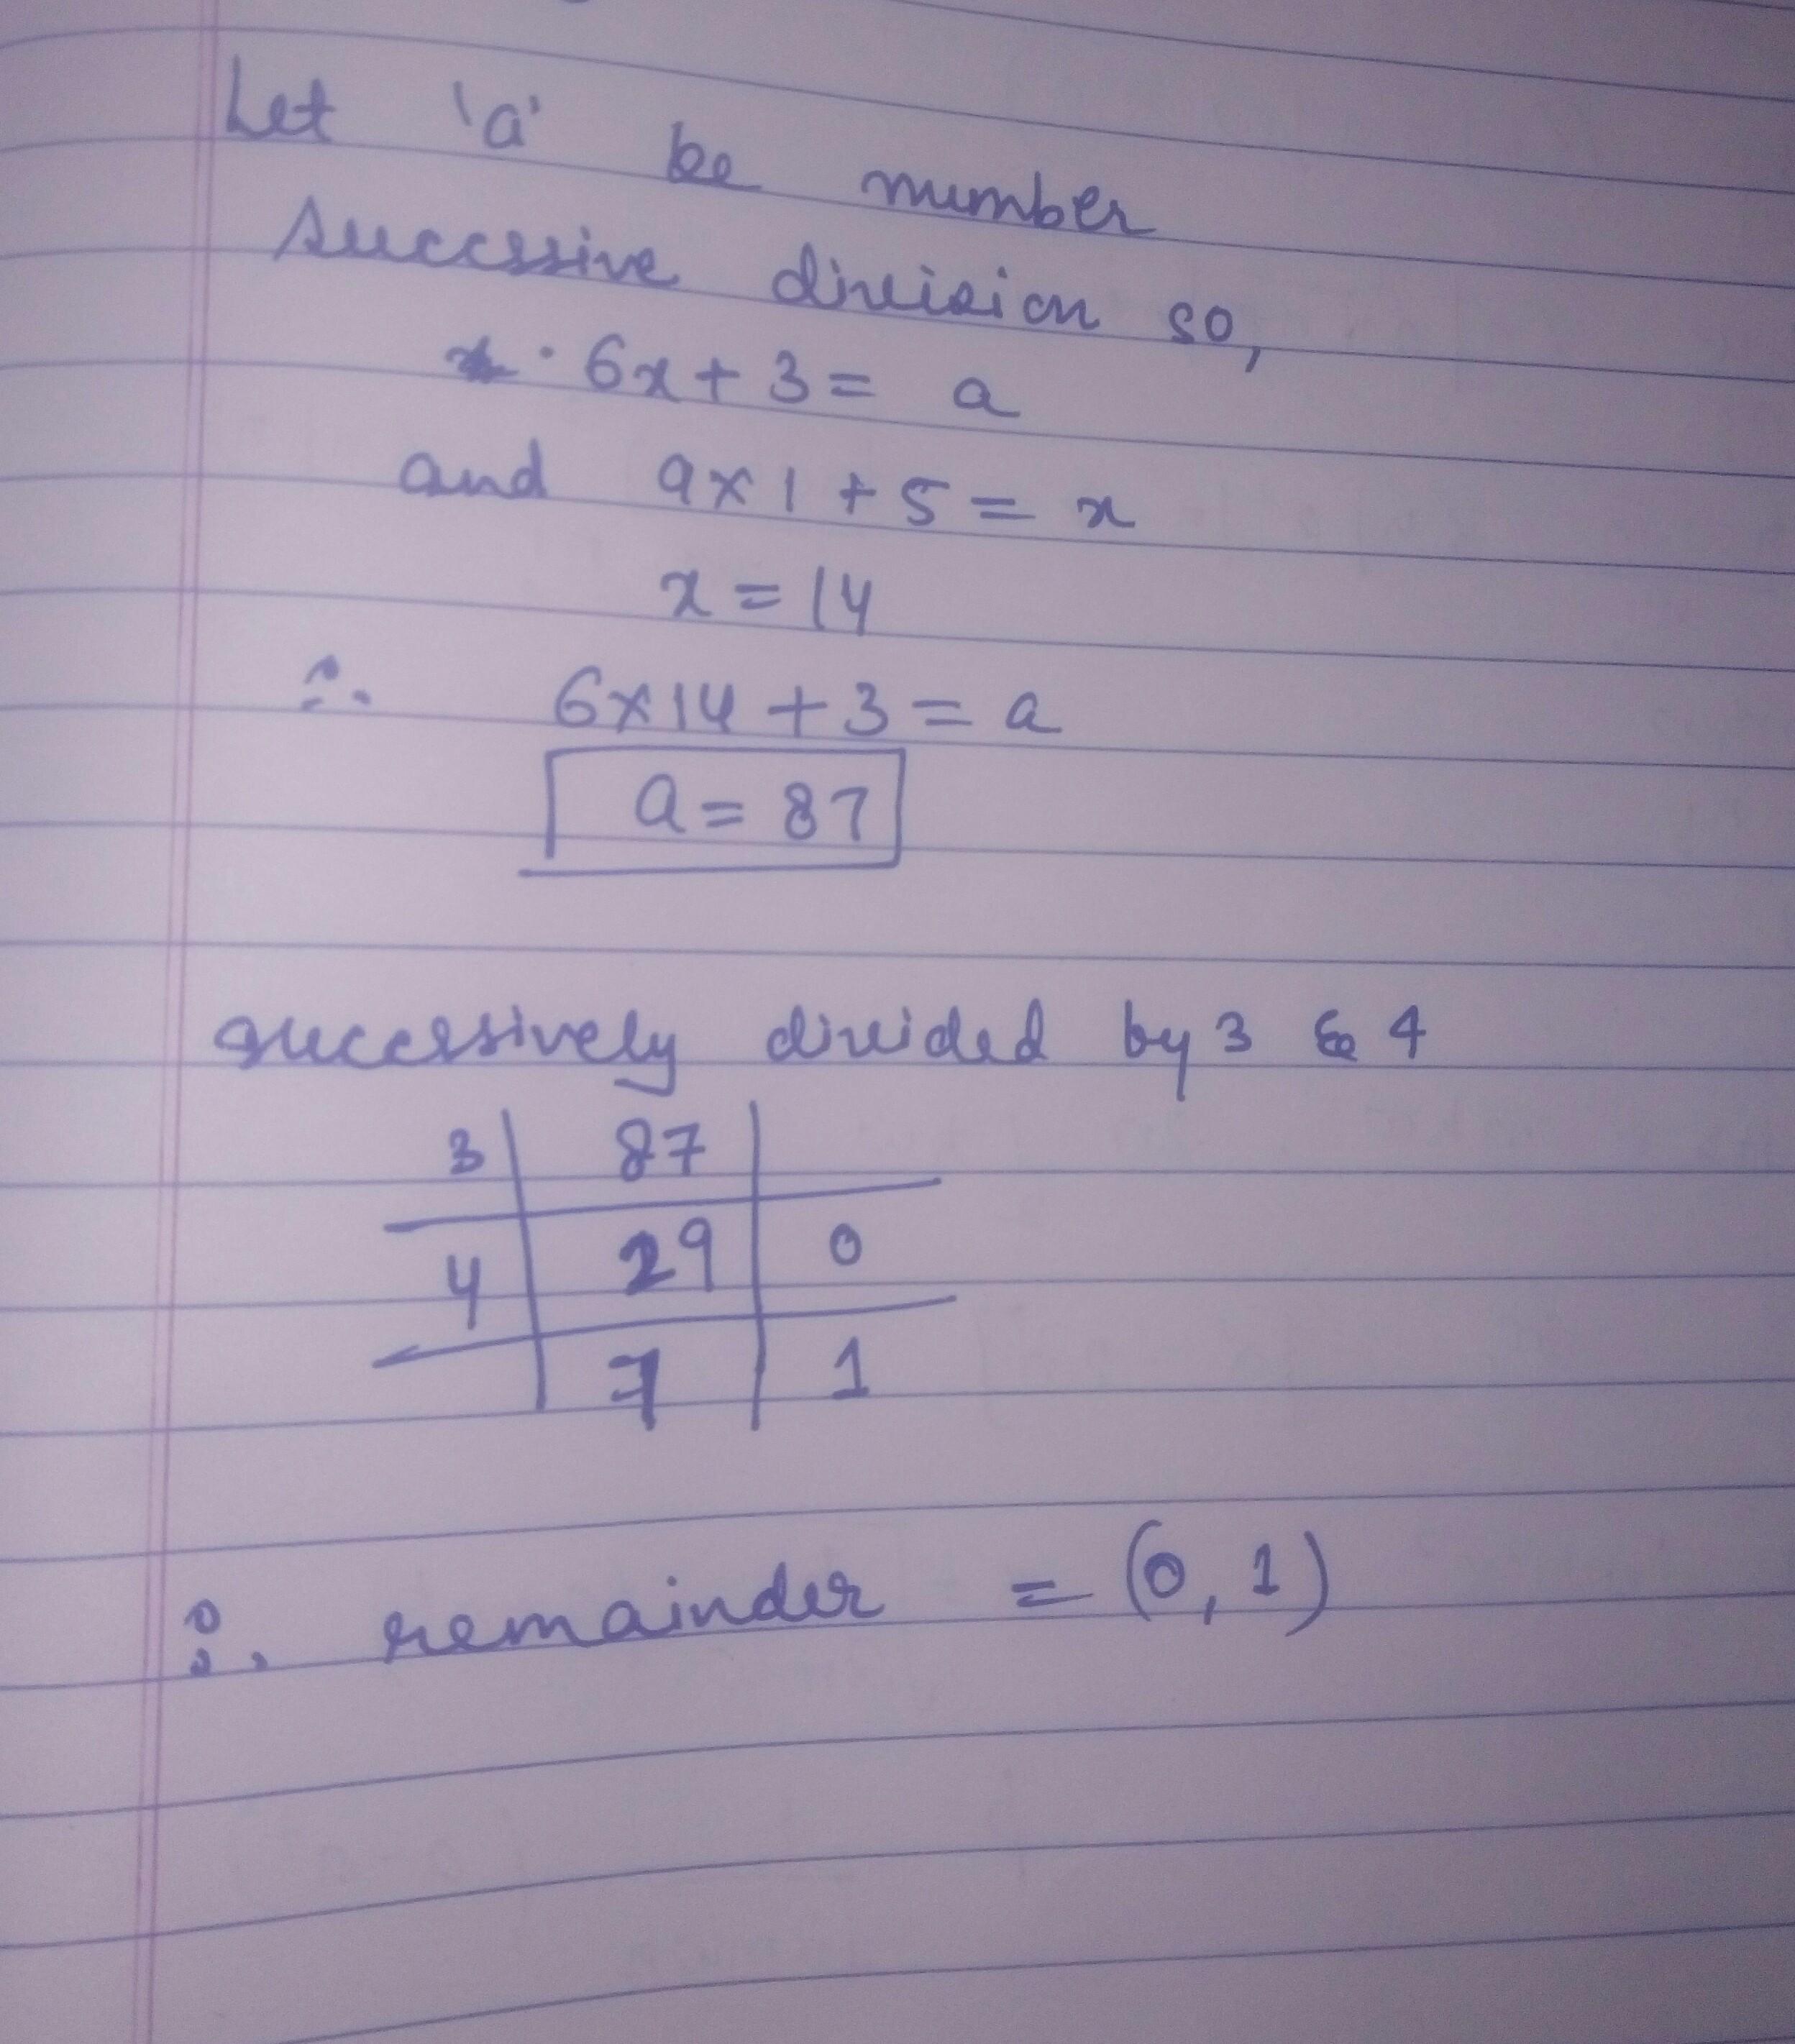 Let 'a' be number
successive division so,
6x + 3 = a
and 9 × 1 + 5 = x
x = 14
∴ 6 × 14 + 3 = a
a = 87
successively divided by 3 & 4
3 | 87 |
4 | 29 | 0
| 7 | 1
∴ remainder = (0, 1)